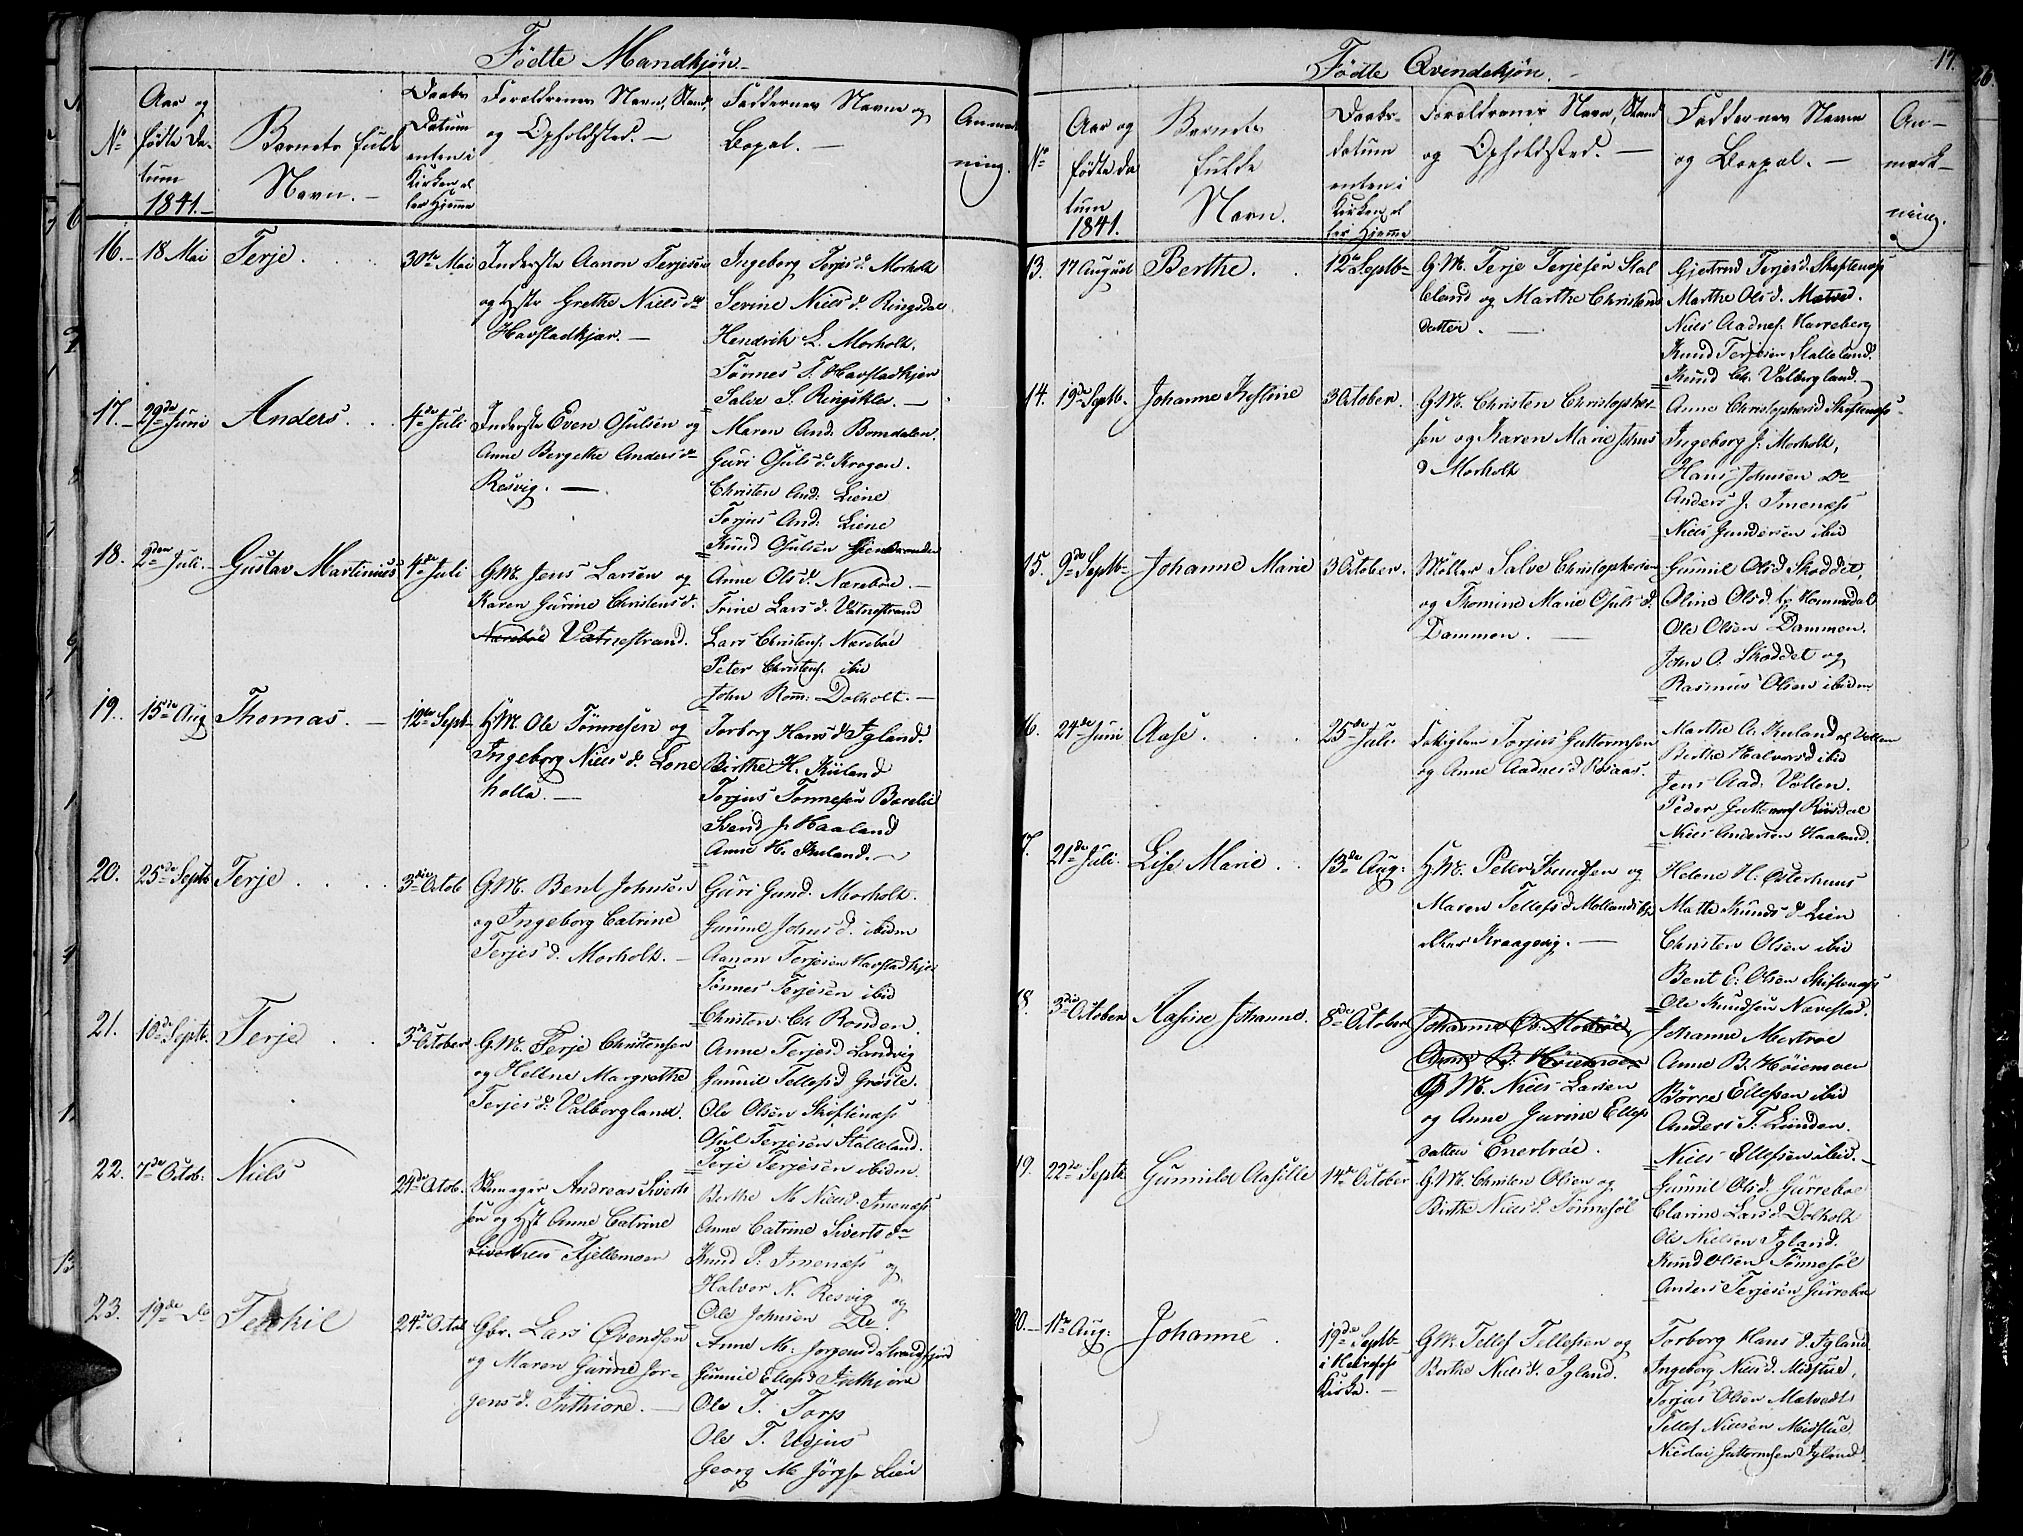 Fødte Mandkjøn
No
Aar og
fødte Da-
tum
1841.
Barnets fulde
Navn.
Daabs
Datum
enten i
Kirken el
ler Hjemme
Forældrenes Navn, Stand,
og Opholdsted.
Faddernes Navne og
Bopæl.
Anmærk
ning.
16. 18 Mai Terje. 30te Mai
Inderste Aanon Terjesen
og Hstr Grethe Niels dtr
Havstadkjær.
Ingeborg Terjes d. Morholt
Serine Niels d. Ringsdal
Hendrik L. Morholt.
Tønnes T. Havstadkjær
Salve S. Ringsdal.
17. 29de Juni Anders. 4de Juli
Inderste Even Osulsen og
Anne Bergethe Anders dtr
Resvig.
Maren And: Bomdalen.
Guri Osuls d. Krogen.
Christen And: Liene
Torjus And: Liene
Knud Osulsen
18. 2den Juli. Gustav Martinius 4de Juli
G. M. Jens Larsen og
Karen Gurine Christens d.
Nærebøe Vatnestrand.
Anne Ols d. Nærebøe.
Trine Lars d. Vatnestrand
Lars Christens. Nærebøe
Peter Christens. ibid
John Rom: Dolholt.
19. 15de Aug Thomas. 12te Sept
H. M. Ole Tønnesen og
Ingeborg Niels d. Lone
holla.
Torborg Hans d. Igland.
Birthe H. Kuland
Torjus Tønnesen Barelie
Svend J. Haaland
Anne H. Kuland.
20. 25de Septb Terje. 3die Octob
G. M. Bent Johnsen
og Ingeborg Catrine
Terjes d. Morholt.
Guri Gund. Morholt.
Gunnil Johns d. ibidm
Aanon Terjesen Havstadkjær
Tønnes Terjesen ibid
Christen Ch. Ronden.
21. 10de Septb. Terje 3die October
G. M. Terje Christensen
og Hellene Margrethe
Terjes d. Valborgland.
Anne Terjes d. Landvig
Gunnil Tellefs d. Grøsle.
Ole Olsen Skiftenæss
Osul Terjesen Stalleland.
Terje Terjesen ibidm.
22. 7de Octob: Niels 24de Octob.
Andreas Siverts
sen og Hst Anne Catrine
Fjellemoen
Berthe M. Niels d. Imenæss
Anne Catrine Siverts dtr
Knud P. Imenæss og
Halvor N. Resvig og
Ole Johnsen
23. 19de Do Terkil 24de Octob
Gbr. Lars Øvensen
og Maren Gurine Jør-
gens d. Inthiore.
Anne M: Jørgens d. Strandfjord
Gunnil Ellefs d. Inthiore
Ole T. Torp
Ole T. Udjus
Georg M. Jørgs. Lien
Fødte Qvindekjøn.
17.
No
Aar og
fødte Da
tum
1841.
Barnets
fulde
Navn.
Daabs-
datum
enten i
Kirken, el
ler Hjemme
Forældrenes Navn, Stand
og Opholdsted.
Faddernes Navne
og Boepæl.
An-
mærk-
ning.
13. 17 August Berthe. 12te Septb
G. M. Terje Terjesen Stal
leland og Marthe Christens
datter.
Gjertrud Terjes d. Skiftenæss
Marthe Ols d. Mætved.
Niels Aadnes. Harreberg
Knud Terjesen Stalleland.
Knud Ch. Valborgland.
14. 19de Septb. Johanne Kestine 3 October.
G. M. Christen Christopher-
sen og Karen Marie Johns
d Morholt
Anne Christophers d Skiftenæss
Ingeborg J. Morholt,
Hans Johnsen Do
Anders J. Imenæss
Niels Gundersen ibid
15. 9de Septb Johanne Marie 3 October.
Møller Salve Christophersen
og Thomine Marie Osuls d.
Dammen.
Gunnil Ols d Skoddet,
Oline Ols d. Hommedal
Ole Olsen Dammen.
John O. Skoddet og
Rasmus Olsen ibidm
16. 24de Juni Aase. 25de Juli
Torjus Guttormsen
og Anne Aadnes d Rosaas.
Marthe A. Kuland
Berthe Halvors d ibid
Jens Aad. Vollen.
Peder Guttorms Riisdal
Niels Andersen Haaland.
17. 21de Juli. Lise Marie 13de Aug:
H. M. Peter Knudsen og
Maren Tellefs d Molland
Kraagevig.
Helene H. Østerhuus
Mathe Knuds d Lien
Christen Olsen ibid
Bent E. Olsen Skiftenæss
Ole Knudsen Nævestad.
18. 3die October Aasine Johanne. 8de October
Johanne Mostrøe
Anne B. Høiemoen
G M. Niels Larsen
og Anne Gurine Ellefs
datter Enertrøe.
Johanne Mostrøe
Anne B. Høiemoen
Børre Ellefsen ibid
Anders T. Lunden.
Niels Ellefsen ibid.
19. 22de Septb Gunnild Aasille 14de October
G. M. Christen Olsen og
Birthe Niels d. Tønnesøl
Gunnil Ols d. Gurrebøe
Clarine Lars d. Dolholt
Ole Nielsen Igland.
Knud Olsen Tønnesøl
Anders Terjesen Gurrebøe
20. 11te Aug: Johanne. 19de Septb
i Herefoss
Kirke.
G. M. Tellef Tellefsen og
Berthe Niels d. Igland.
Torborg Hans d. Igland
Ingeborg Niels d. Midstue,
Torjus Olsen Mætvedt
Tellef Nielsen Midstue,
Nicolai Guttormsen Igland.